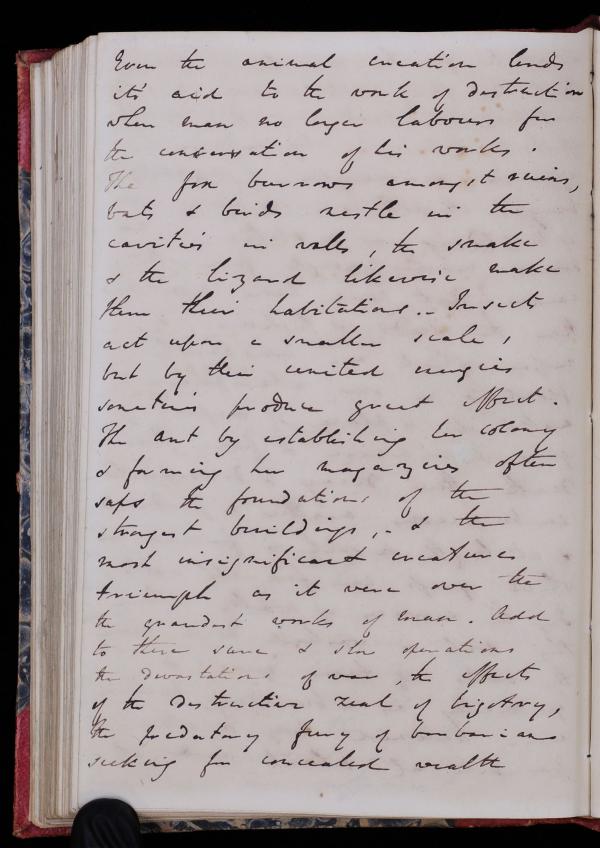 Even the animal creation lends
its aid to the work of destruction
when man no longer labours for
the conservation of his works.
The fox burrows amongst ruins,
bats & birds nestle in the
cavities in walls, the snake
& the lizard likewise make
them their habitations. - Insects
act upon a smaller scale,
but by their united energies
sometimes produce great effect.
The ant by establishing her colony
& forming her magazines often
saps the foundations of the
strongest buildings, - & the
most insignificant creatures
triumph as it were over the
the grandest works of man. Add
to these sure & slow operations
the devastations of war, the effects
of the destructive zeal of bigotry,
the predatory fury of barbarians
seeking for concealed wealth